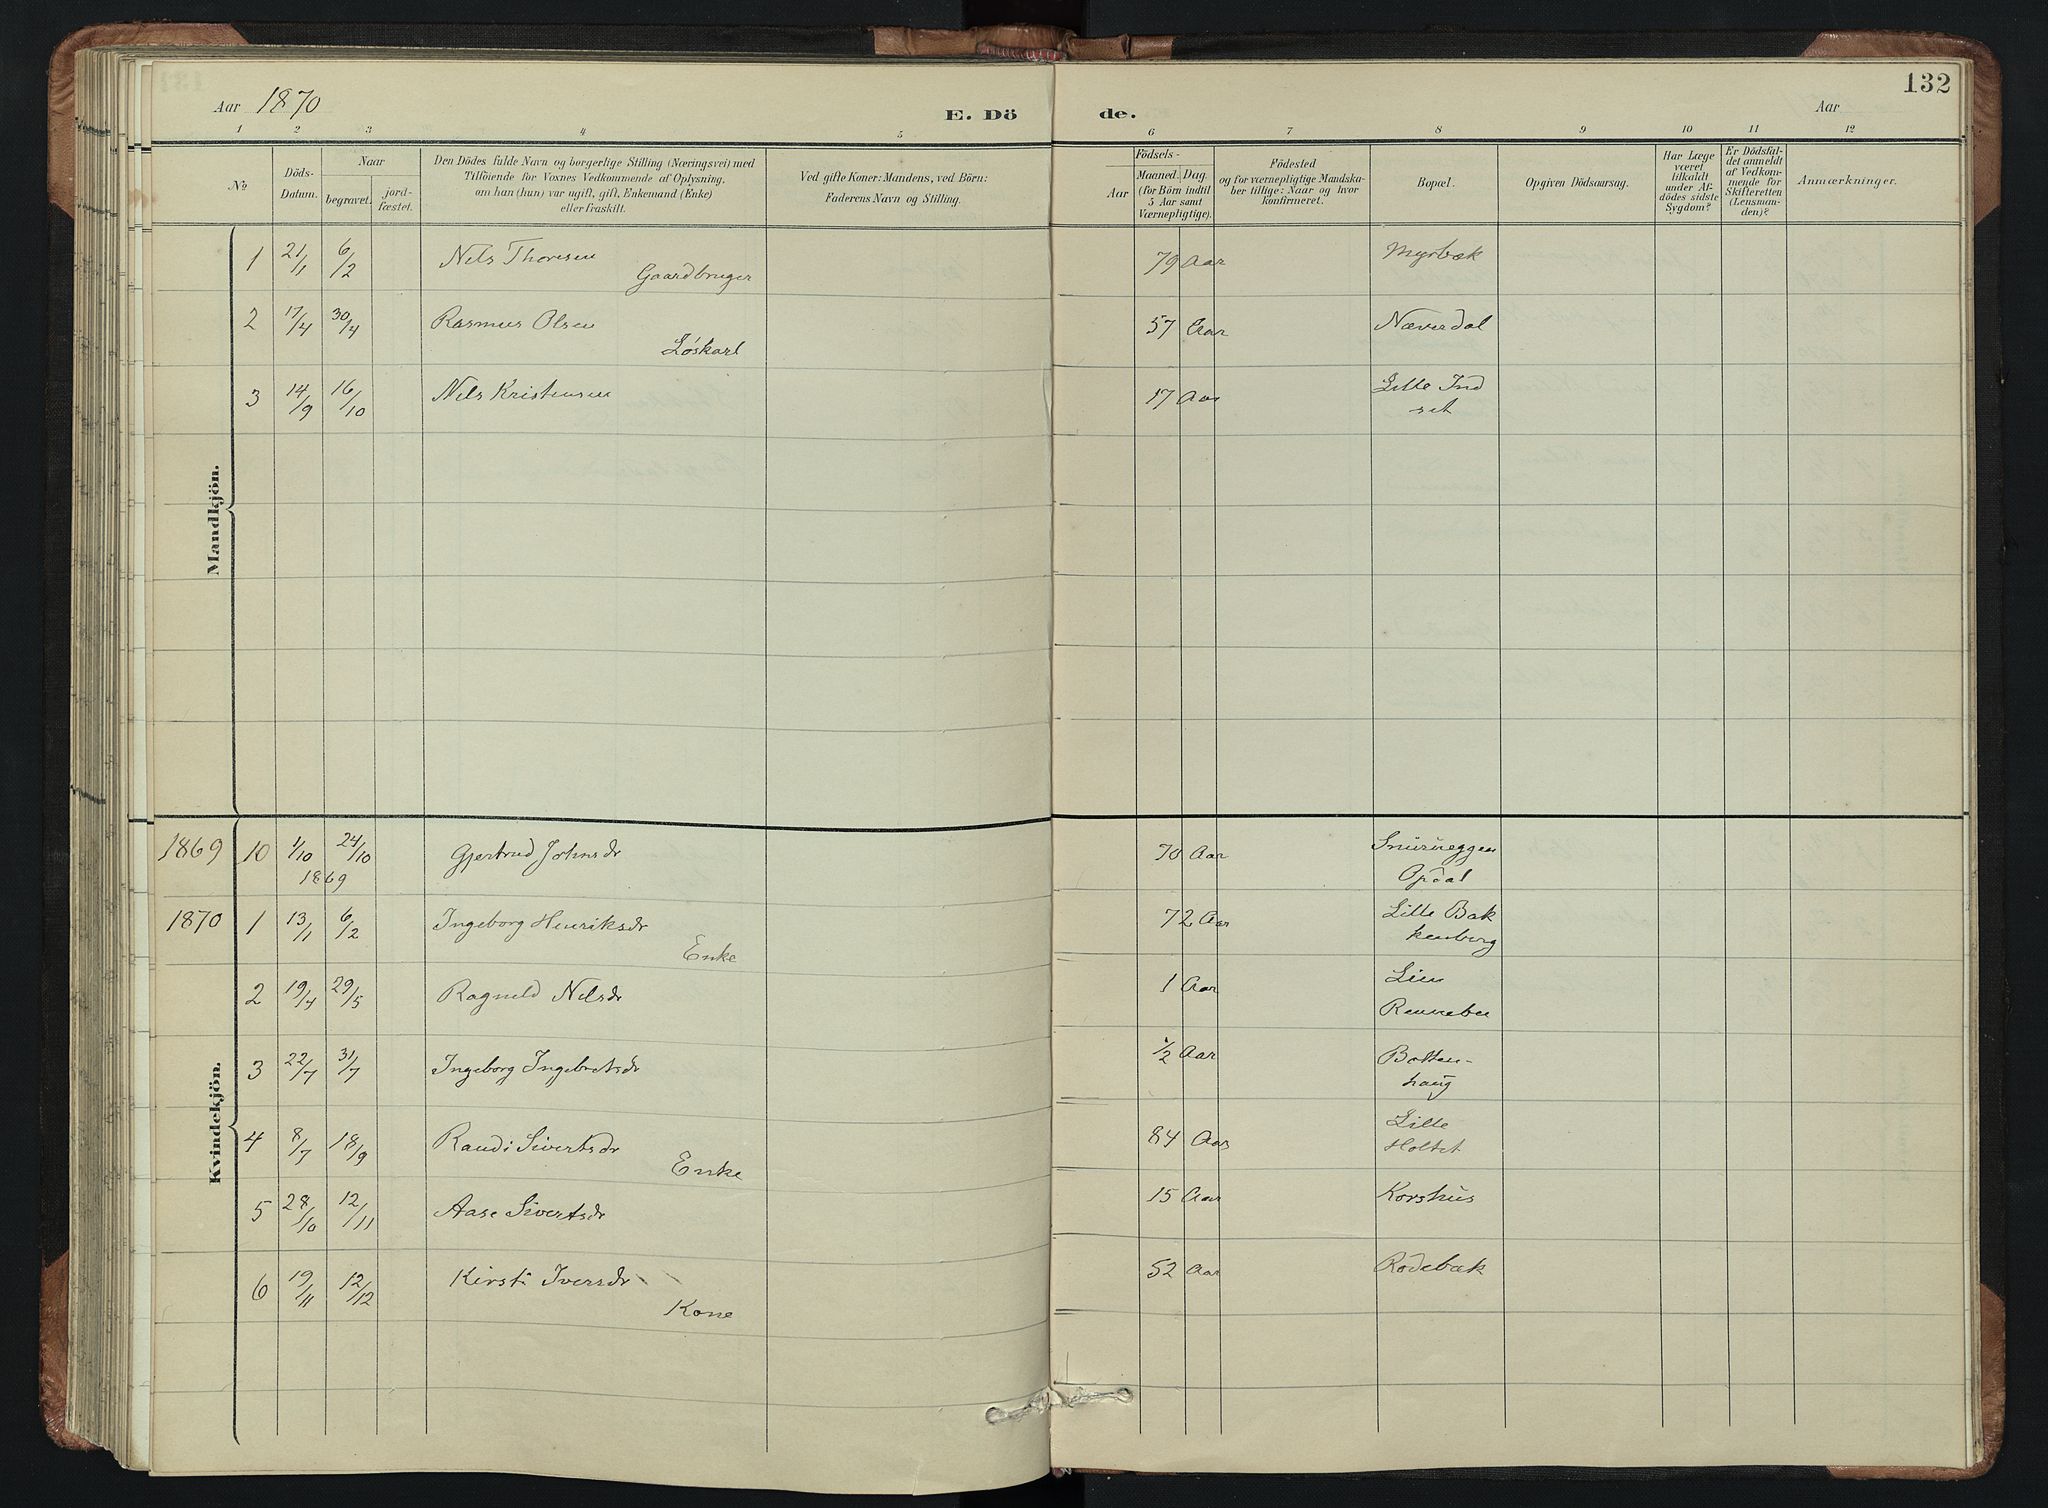 132
Aar 1870
E. Dö
de.
Aar
1 2 3 4 5 6 7 8 9 10 11 12
No
Döds-
Datum.
Naar
begravet.
jord-
fæstet.
Den Dödes fulde Navn og borgerlige Stilling (Næringsvei) med
Tilföiende for Voxnes Vedkommende af Oplysning.
om han (hun) var ugift, gift, Enkemand (Enke)
eller fraskilt.
Ved gifte Koner: Mandens, ved Börn:
Faderens Navn og Stilling.
Aar
Födsels-
Maaned. Dag.
(for Börn indtil
5 Aar samt
Værnepligtige).
Födested
og for værnepligtige Mandska-
ber tillige: Naar og hvor
konfirmeret.
Bopæl.
Opgiven Dödsaarsag.
Har Læge
været
tilkaldt
under Af-
dödes sidste
Sygdom?
Er Dödsfal-
det anmeldt
af Vedkom-
mende for
Skifteretten
(Lensman-
den)?
Anmærkninger.
Mandkjön.
1 21/1 6/2 Nils Thoresen 79 Aar Myrbæk
Gaardbruger
2 17/4 30/4 Rasmus Olsen 57 Aar Næverdal
Løskarl
3 14/9 16/10 Nils Kristensen 17 Aar Lille Ind
set
Kvindekjön.
1869 10 1/10 24/10 Gjertrud Johnsdr 70 Aar Snürueggen
1869 Opdal
1870 1 13/1 6/2 Ingeborg Henriksdr 72 Aar Lille Bak
Enke kenberg
2 19/4 29/5 Ragnild Nilsdr 1 Aar Lien
Rennebu
3 22/7 31/7 Ingeborg Ingebretsdr 1/2 Aar Botten-
haug
4 8/7 18/9 Randi Sivertsdr 84 Aar Lille
Enke Holtet
5 28/10 12/11 Aase Sivertsdr 15 Aar Korshus
6 19/11 12/12 Kirsti Iversdr 52 Aar Rødebæk
Kone